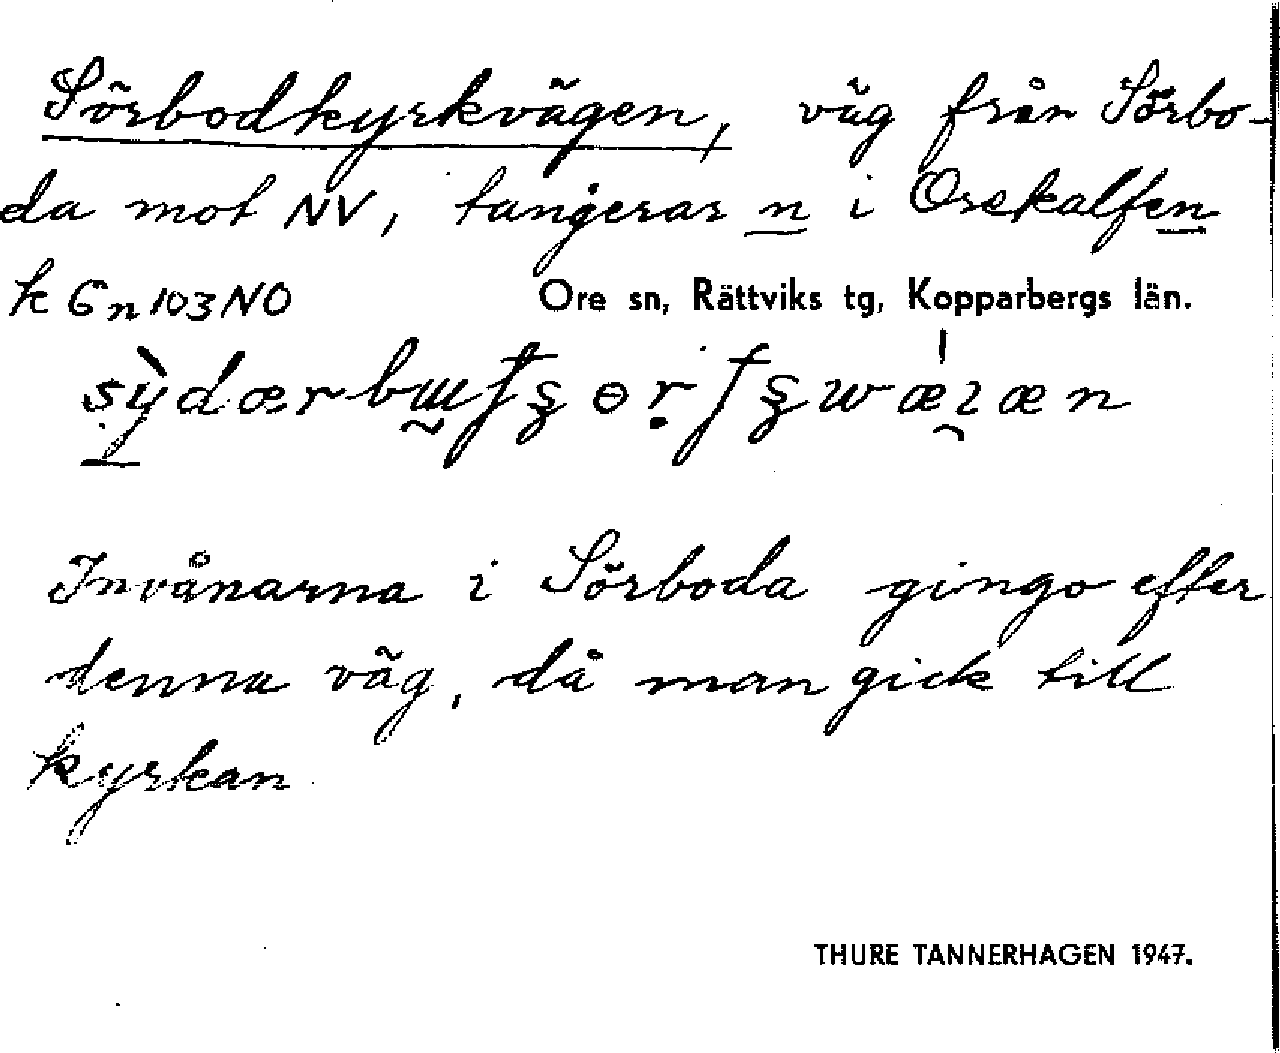 Sörbodkyrkvägen, väg från Sörbo-
da mot NV, tangerar n i Orekalfen
k 6n103NO Ore sn, Rättviks tg, Kopparbergs län.
Invånarna i Sörboda gingo efter
denna väg, då man gick till
kyrkan
THURE TANNERHAGEN 1947.